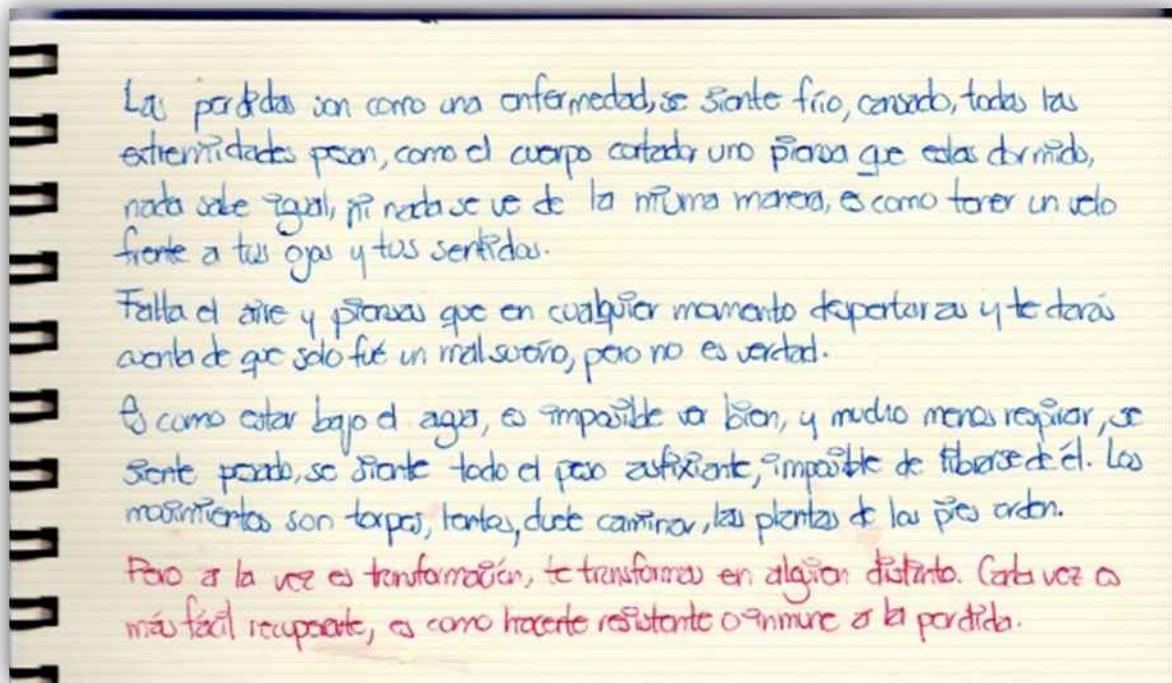 Las perdidas son como una enfermedad, se siente frío, cansado, todas las
extremidades pesan, como el cuerpo cortado, uno piensa que estas dormido,
nada sabe igual, ni nada se ve de la misma manera, es como tener un velo
frente a tus ojos y tus sentidos.
Falta el aire y piensas que en cualquier momento despertaras y te darás
cuenta de que solo fué un mal sueño, pero no es verdad.
Es como estar bajo el agua, es imposible ver bien, y mucho menos respirar, se
siente pesado, se siente todo el peso asfixiante, imposible de liberse de él. Los
movimientos son torpes, lentos, duele caminar, las plantas de los pies arden.
Pero a la vez es transformación, te transformas en alguien distinto. Cada vez es
más fácil recuperarte, es como hacerte resistente o inmune a la perdida.